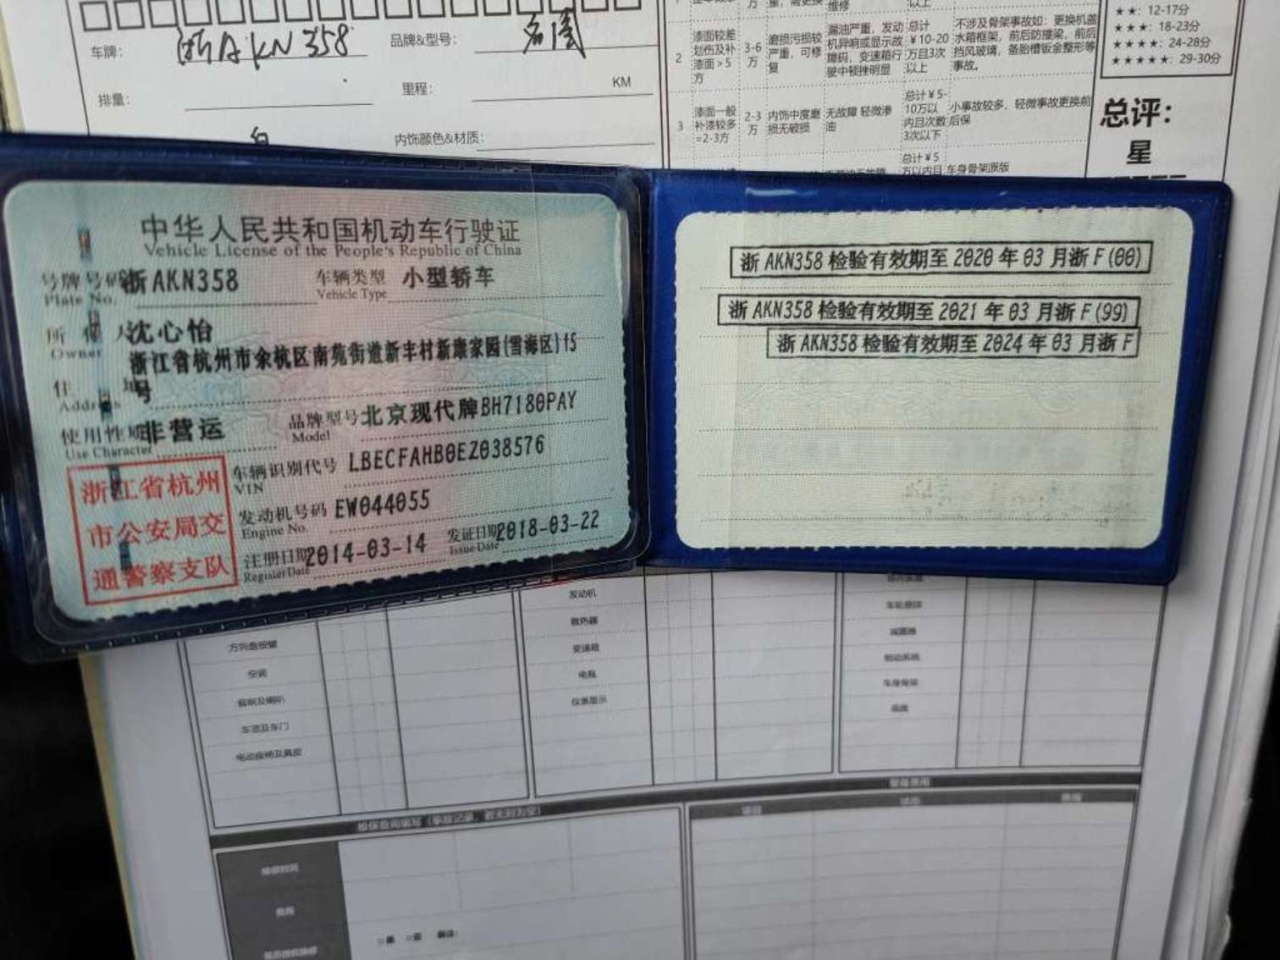 车牌： 浙AKN358 品牌&型号： 名图
排量： 里程： KM
内饰颜色&材质：
2 漆面较差划伤及补漆面＞5方 3-6万 磨损污损较严重，可修复 漏油严重，发动机异响或显示故障码，变速箱行驶中顿挫明显 总计￥10-20万且3次以上 不涉及骨架事故如：更换机盖水箱框架，前后防撞梁，前后挡风玻璃，备胎槽钣金整形等事故。
3 漆面一般补漆较多=2-3方 2-3万 内饰中度磨损无破损 无故障 轻微渗油 总计￥5-10万以内且次数3次以下 小事故较多，轻微事故更换前后保
总计￥5万以内且 车身骨架原版
★★：12-17分
★★★：18-23分
★★★★：24-28分
★★★★★：29-30分
总评：
星
中华人民共和国机动车行驶证
Vehicle License of the People's Republic of China
号牌号码 浙AKN358 车辆类型 小型轿车
Plate No. Vehicle Type
所有人 沈心怡
Owner
浙江省杭州市余杭区南苑街道新丰村新康家园(雪海区)f5
住址 号
Address
使用性质 非营运 品牌型号 北京现代牌BH7180PAY
Use Character Model
车辆识别代号 LBECFAHB0EZ038576
VIN
发动机号码 EW044055
Engine No.
注册日期 2014-03-14 发证日期 2018-03-22
Register Date Issue Date
浙江省杭州
市公安局交
通警察支队
浙AKN358检验有效期至2020年03月浙F(00)
浙AKN358检验有效期至2021年03月浙F(99)
浙AKN358检验有效期至2024年03月浙F
发动机
散热器
变速箱
电瓶
仪表显示
方向盘按键
空调
音响及喇叭
车顶及车门
电动座椅及真皮
车轮悬挂
减震器
制动系统
车身骨架
底盘
维保查询填写（事故记录，若无则为空）
整备费用
项目
费用
维修时间